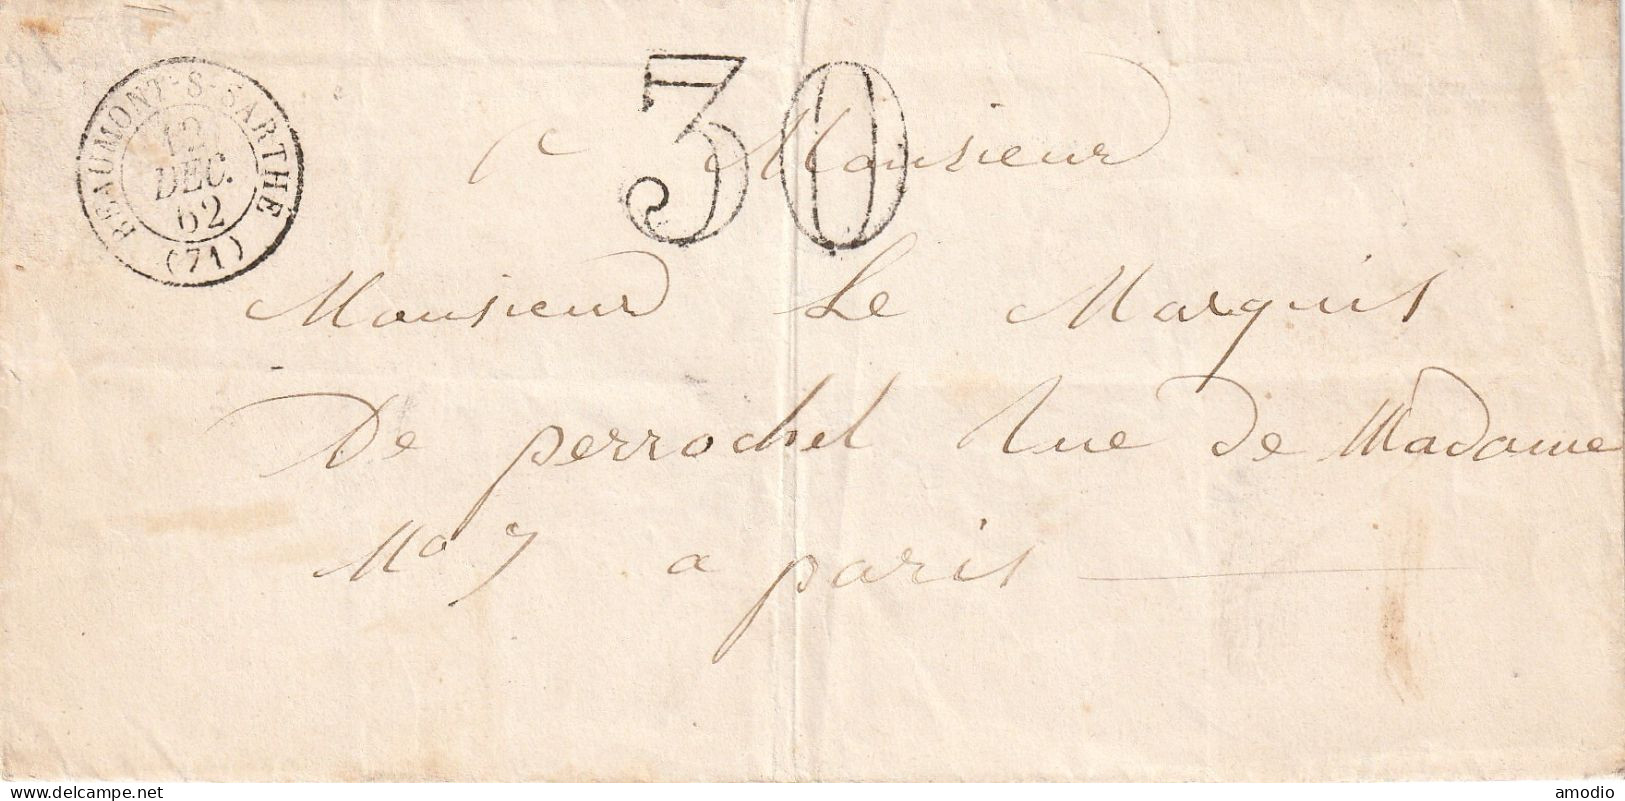 BEAUMONT-S-SARTHE
12
DEC.
62
(71)
30
a Monsieur
Monsieur Le Marquis
De perrochel Rue de Madame
No 7 a paris
delcampe.net
amodio